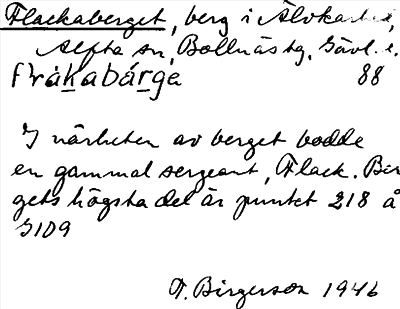 Flackaberget, berg i Älvkarhed,
Alfta sn, Bollnäs tg, Gävl. l.
fråkabárga 88
I närheten av berget bodde
en gammal sergeant, Flack. Ber
gets högsta del är punktet 218 å
GID9
T. Birgerson 1946